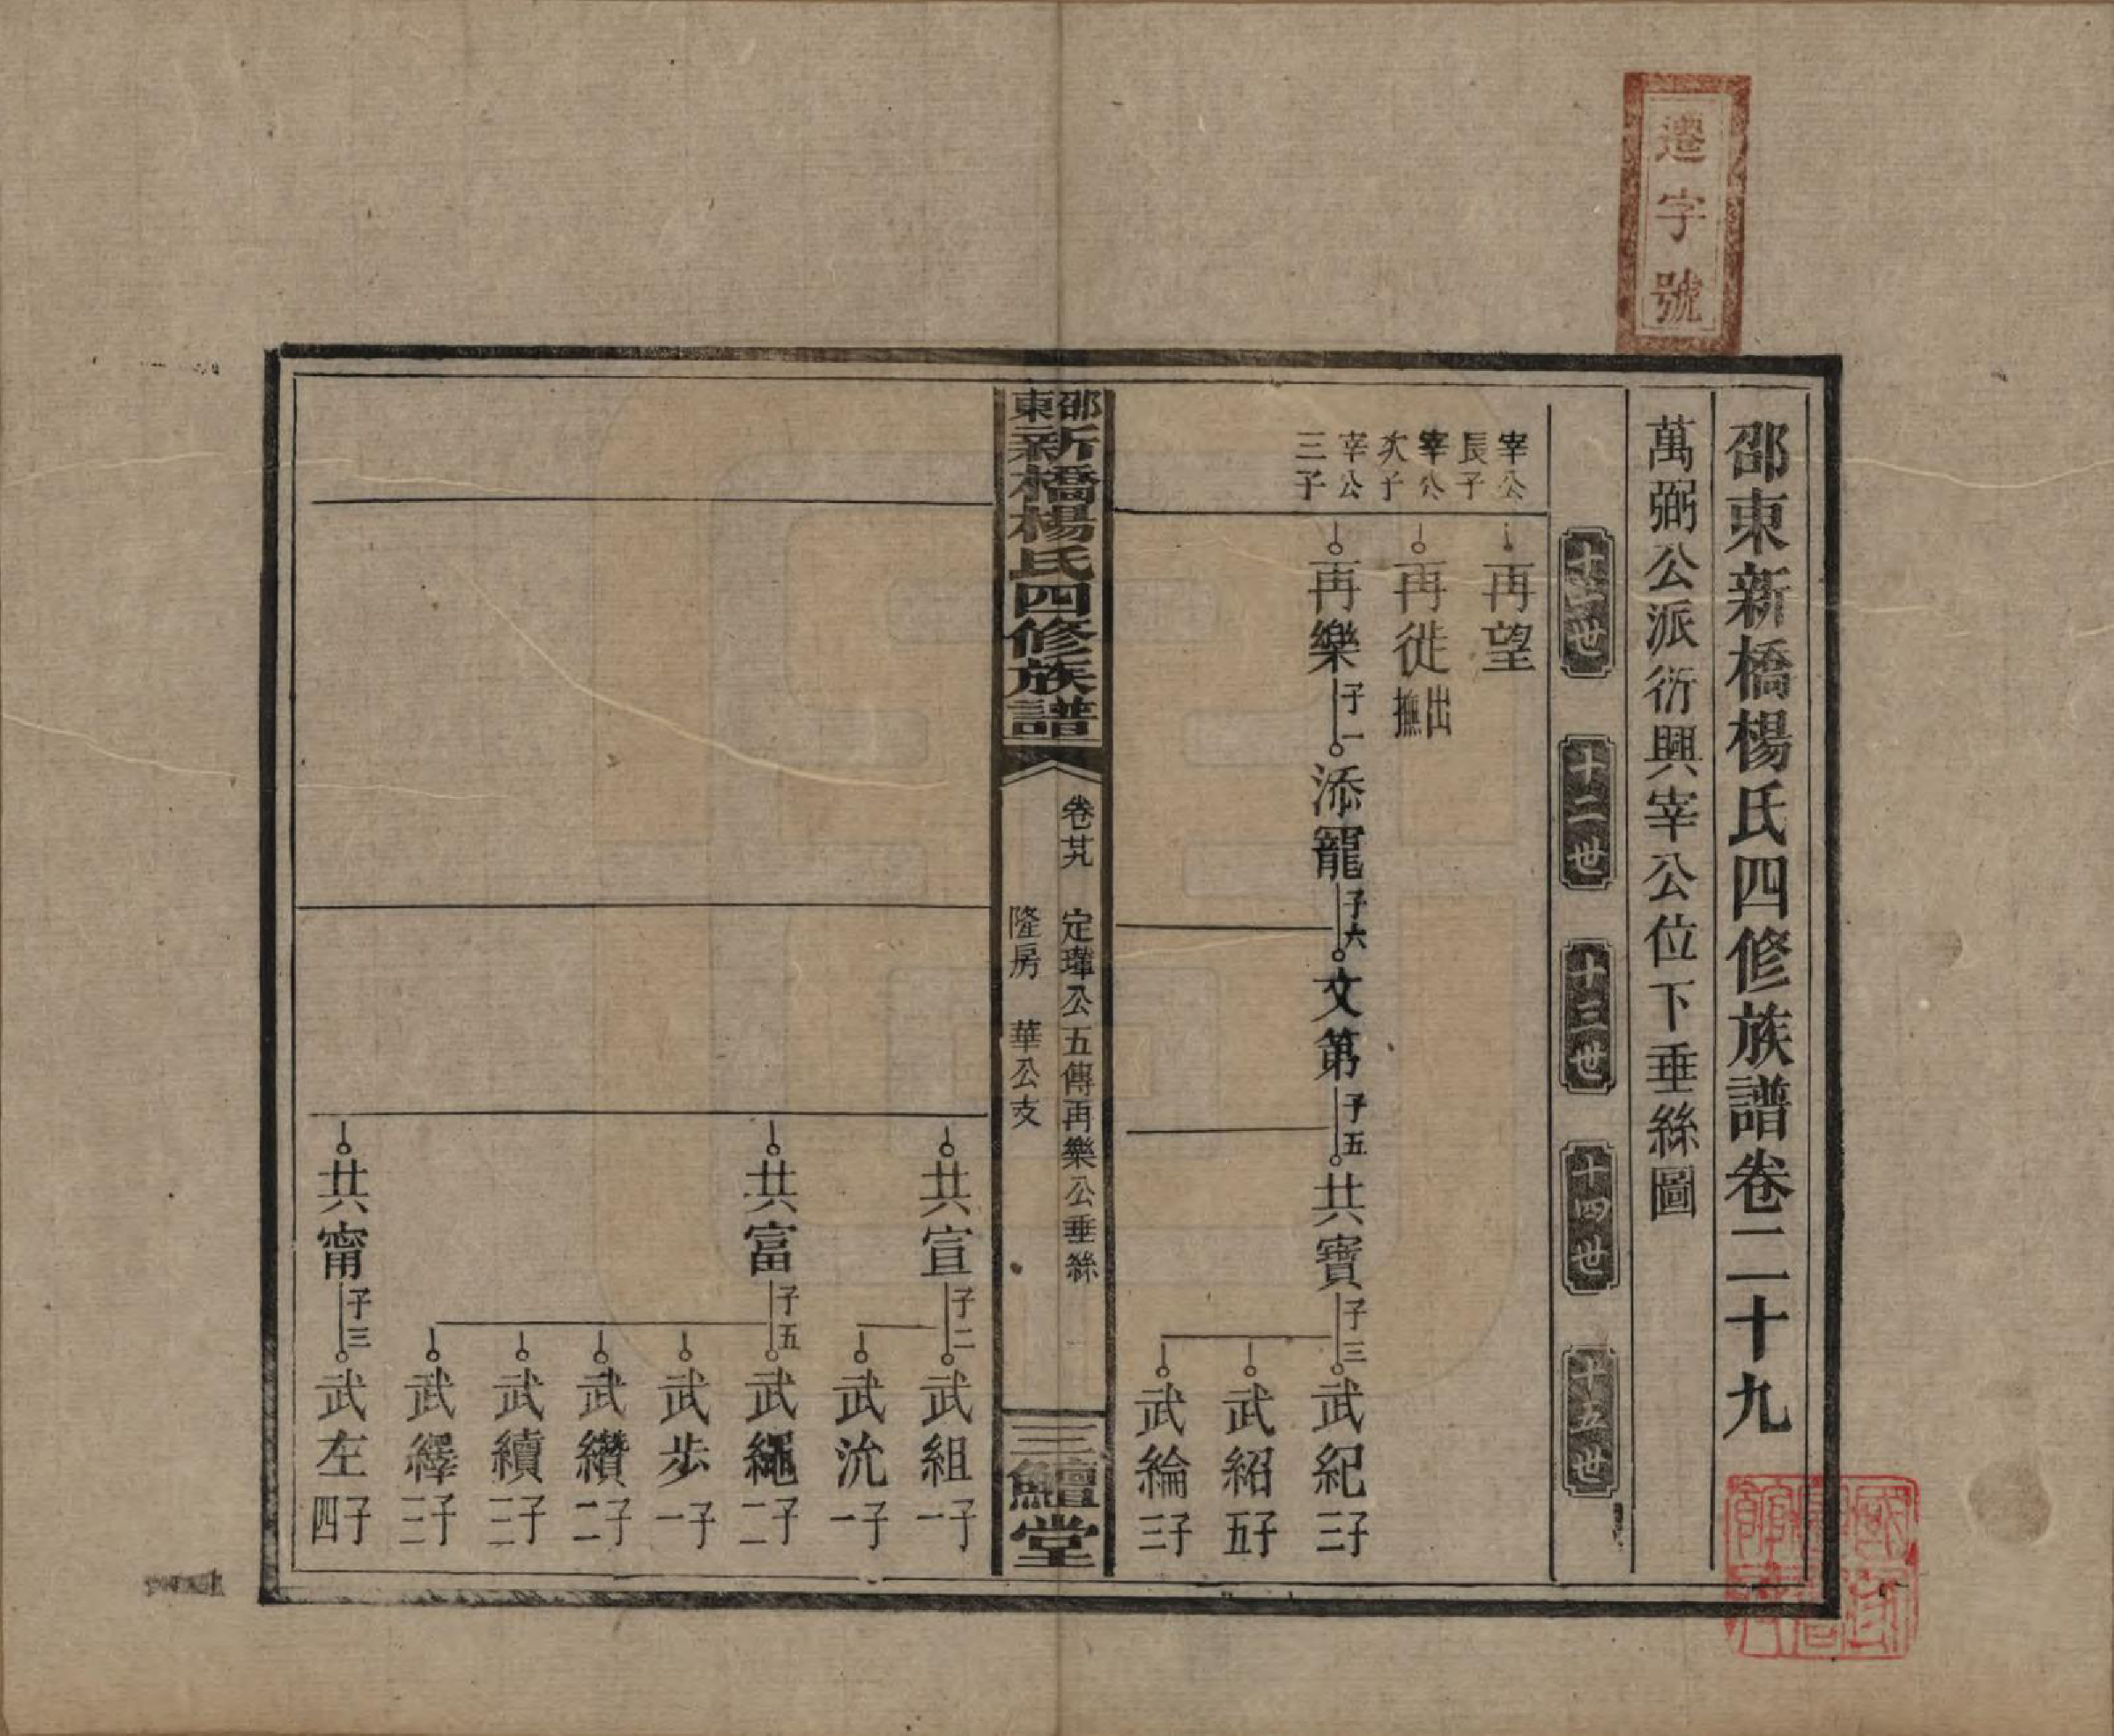 遷字號
邵東新橋楊氏四修族譜卷二十九
萬弼公派衍興宰公位下垂絲圖
十一世
十二世
十三世
十四世
十五世
宰公長子
再望
宰公次子
再徙
出撫
宰公三子
再樂
子一
添寵
子六
文第
子五
共寶
子三
武紀
子三
武紹
子五
武綸
子三
邵東新橋楊氏四修族譜
卷廿九
定瑋公五傳再樂公垂絲
隆房 華公支
一
三鱣堂
共宣
子二
武組
子一
武沇
子一
共富
子五
武繩
子二
武步
子一
武纘
子二
武續
子三
武繹
子三
共甯
子三
武左
子四